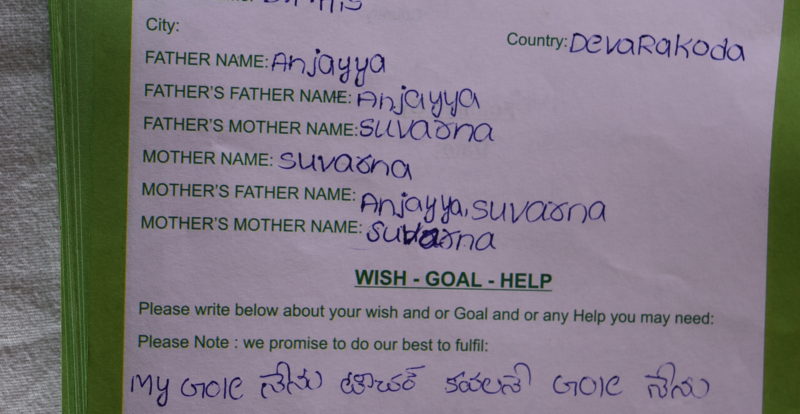 City:
Country: DevaRakoda
FATHER NAME: Anjayya
FATHER'S FATHER NAME: Anjayya
FATHER'S MOTHER NAME: Suvarna
MOTHER NAME: Suvarna
MOTHER'S FATHER NAME: Anjayya, Suvarna
MOTHER'S MOTHER NAME: Suvarna
WISH - GOAL - HELP
Please write below about your wish and or Goal and or any Help you may need:
Please Note : we promise to do our best to fulfil:
My Gole నేను టీచర్ కావాలనే Gole నేను